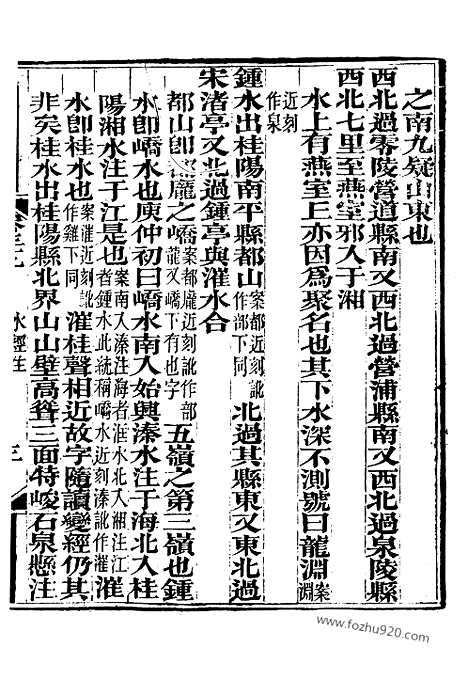 之南九疑山東也
西北過零陵營道縣南又西北過營浦縣南又西北過泉陵縣
西北七里至燕室邪入于湘
水上有燕室丘亦因爲聚名也其下水深不測號曰龍淵案淵
近刻作泉
鍾水出桂陽南平縣都山案都近刻訛作部下同北過其縣東又東北過
宋渚亭又北過鍾亭與灌水合
都山卽都龐之嶠案都龐近刻訛作部龍又嶠下有也字五嶺之第三嶺也鍾
水卽嶠水也庾仲初曰嶠水南入始興溱水注于海北入桂
陽湘水注于江是也案南入溱注海者滙水北入湘注江者鍾水此統稱嶠水近刻溱訛作灌
水卽桂水也案灌近刻訛作雞下同灌桂聲相近故字隨讀變經仍其
非矣桂水出桂陽縣北界山山壁高聳三面特峻石泉懸注
水經注
三
www.fozhu920.com